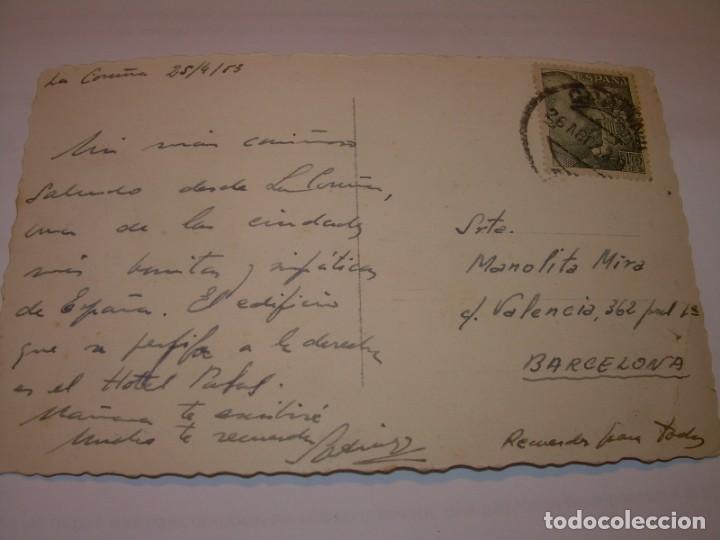 La Coruña 25/4/53
Mi más cariñoso
saludo desde La Coruña,
una de las ciudades
más bonitas y simpáticas
de España. El edificio
que se perfila a la derecha
es el Hotel
Mañana te escribiré
Mucho te recuerda
ESPAÑA
26 ABR
Srta.
Manolita Mira
c/. Valencia, 362 pral 1ª
BARCELONA
Recuerdos para todos
todocoleccion